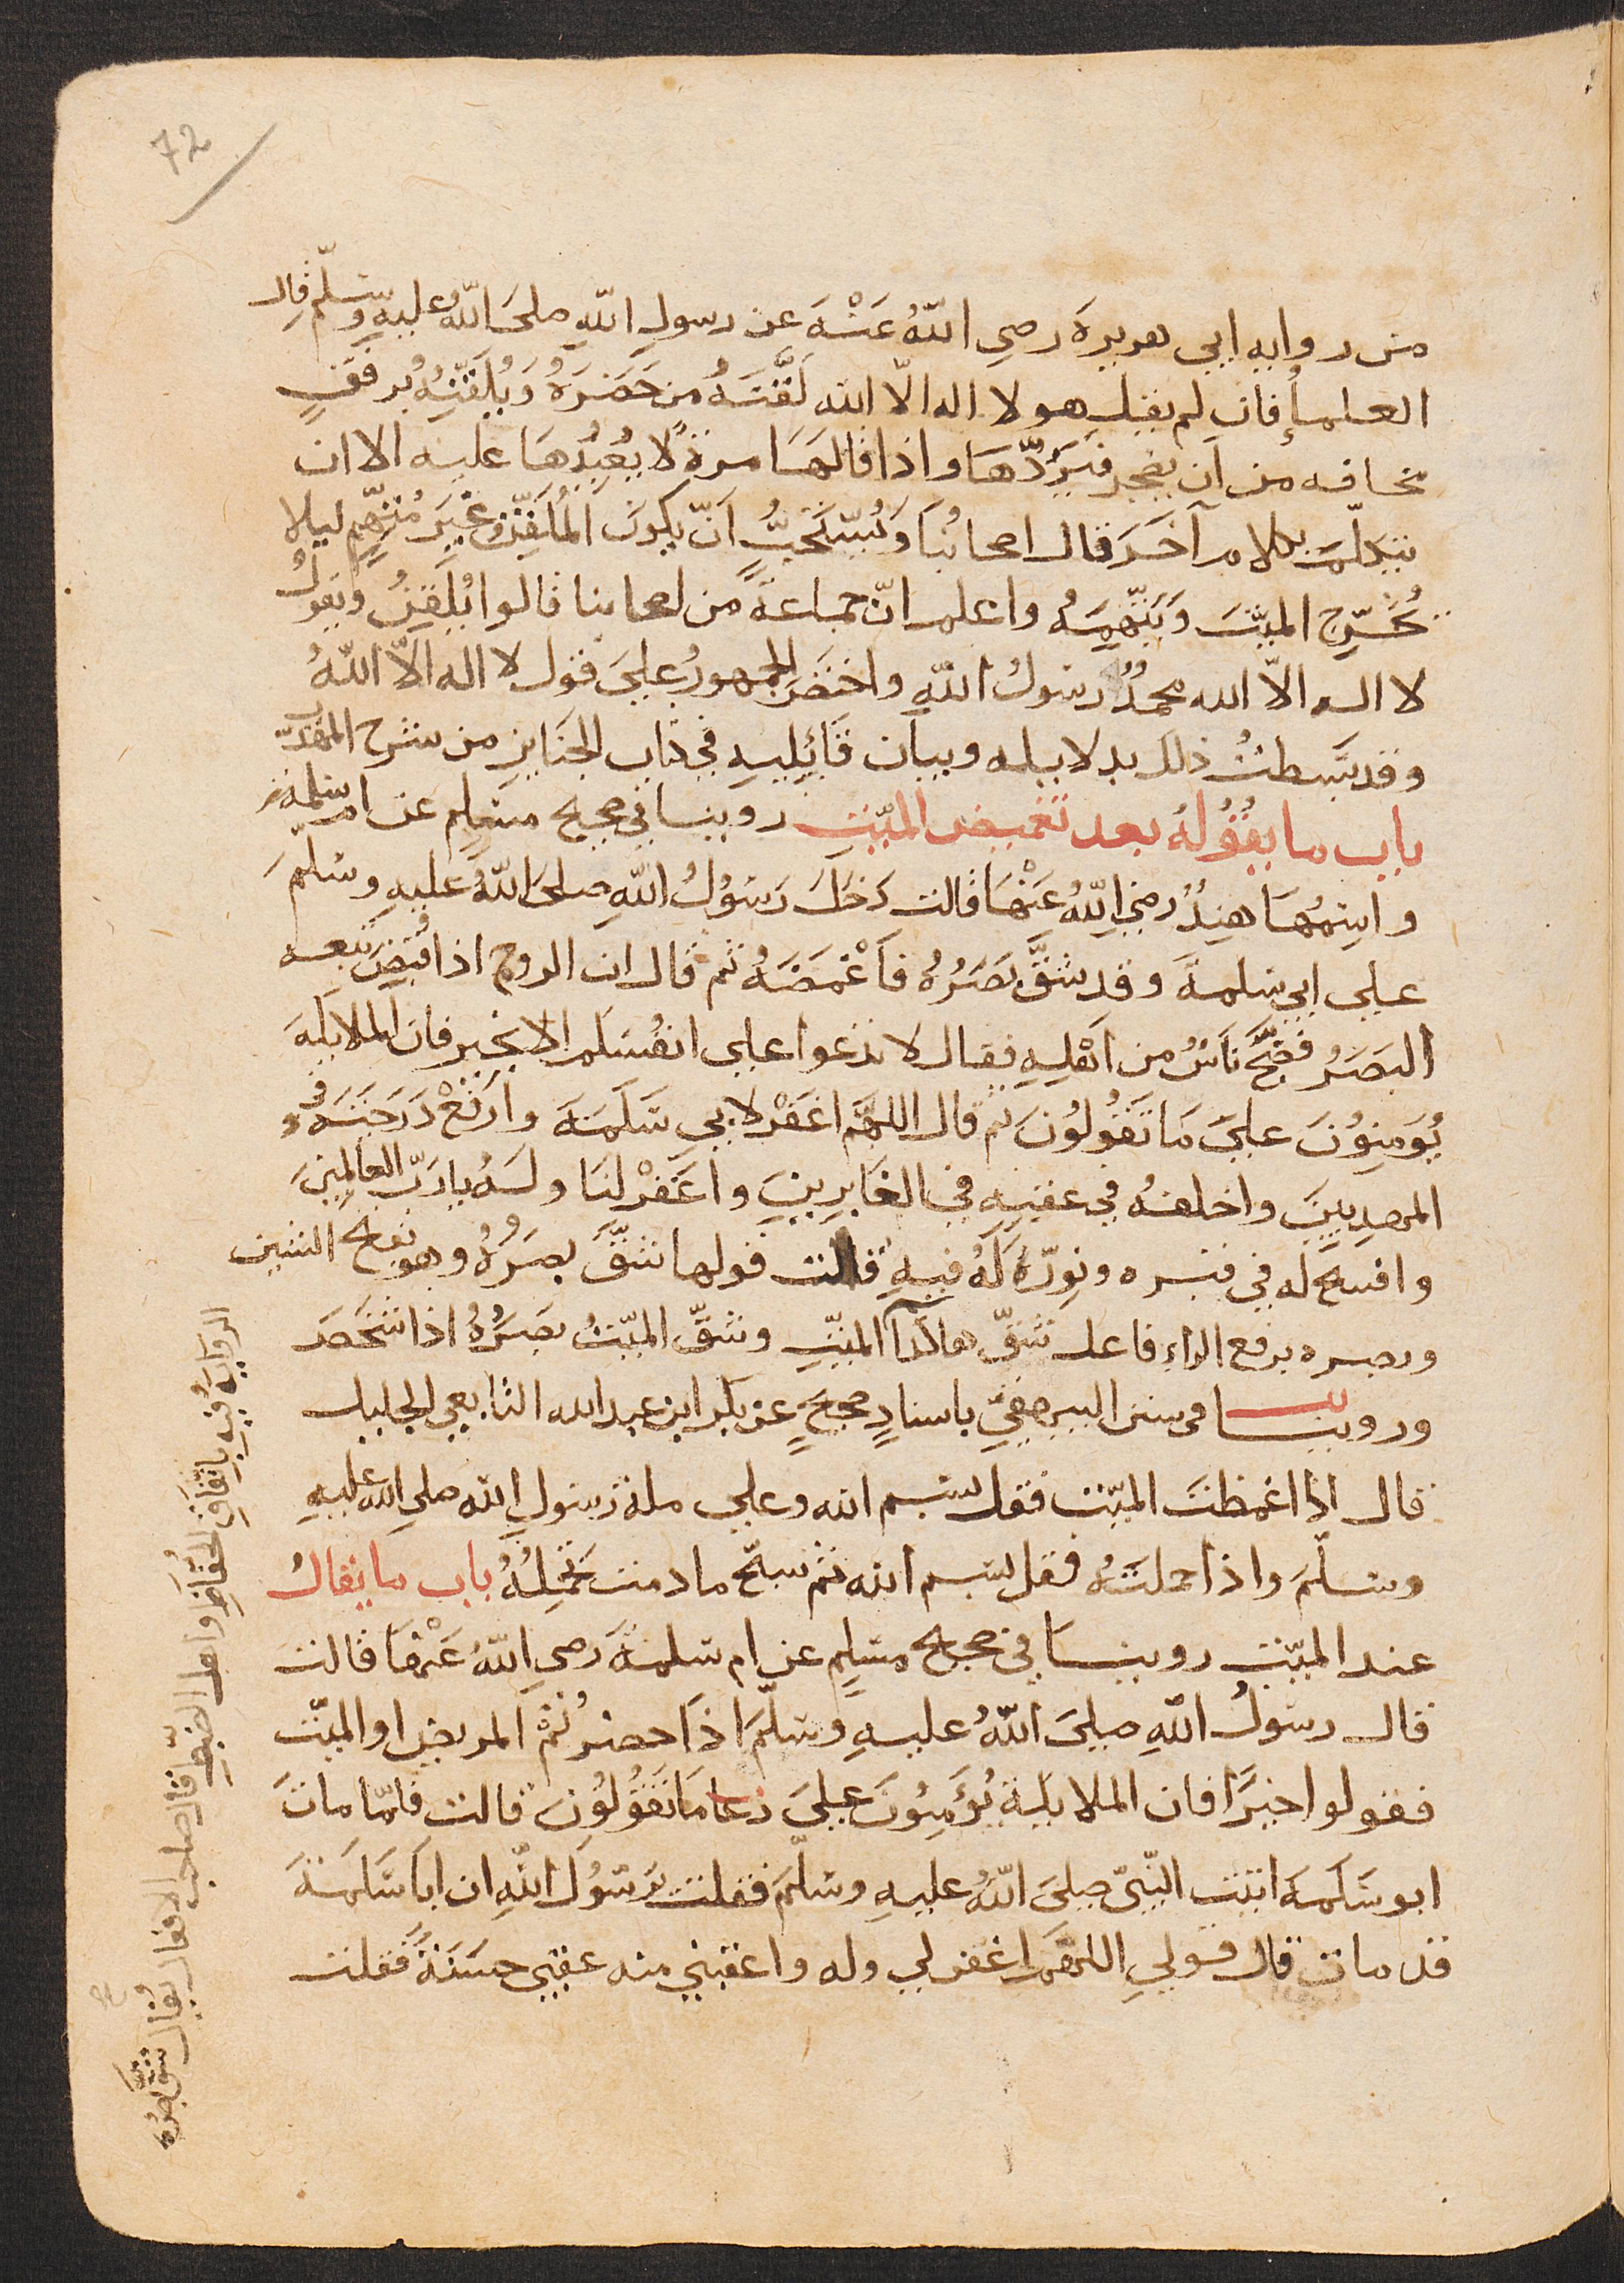 72
من روايه ابي هريرة رضي اللّهُ عَنْهَ عن رسولِ اللّهِ صلىَ اللّهُ عليهِ وسلّم قال
العلمأُ فان لم يقل هو لا اله الّا الله لَقَّنَهُ من حَضَرَهُ وَيُلَقِّنِهُ برفقٍ
مخافه من اَن يضجر فيَرُدّهَا واذا قالهَا مرةً لا يُعيْدُهَا عليه الا ان
يتكلّمَ بكلام آخَرَ قال اصحابُنَا وَيُسْتَحَبُّ اَنّ يكونَ المُلَقِّن غَيرَ مُتّهَمٍ ليلا
يُحَرِّجِ الميّتَ وَيَتَّهِمِهُ واعلم انّ جماعةً من اصحابنا قالوا يُلَقِنُ ويقولُ
لا اله الاّ الله محمدُُ رسولُ اللّهِ واختصَرَ الجمهورُ علىَ قول لا اله الاّ اللّهُ
وقد بَسطتُ ذلك بدلايله وبيان قَايِليهِ في كتاب الجنَايزِ من شرح المهذب
باب ما يقُولُهُ بعد تغميض الميّتِ روينا في صحيح مسلم عن ام سلمةَ
واسمُهَا هِندُُ رضي اللّهُ عَنْهَا قالت دَخلَ رَسُوْلُ اللّهِ صلىَ اللّهُ عليهِ وسلّمَ
على ابي سلمةَ وقد شَقَّ بَصَرُهُ فأَغْمَضَهُ ثم قال ان الروح اذا قُبِضَ تبعه
البَصَرُ فضَجَّ نَاسٌ من اَهْلِهِ فقال لا تدْعوا على انفُسَكم الا بخير فان الملايكة
يُوَمِنوُنَ علىَ مَا تَقُولُونَ ثم قال اللهَمّ اغفَرْ لابي سَلَمَةَ وارفَعْ دَرَجَتَهُ في
المهدِيّينَ واخلفهُ في عقبِهِ في الغَابِرِينَ واغفَرْ لنَا ولَهُ يا رَبّ العالمينَ
وافسح له في قبره ونوّرهُ لَهُ فيهِ قالت قولها شَقَّ بصَرُهُ وهو بفتح الشين
وبصره برفع الراء فاعل شقّ هاكذا الميّتِ وشقّ الميّتُ بصَرُهُ اذا شَخَصَ
وروينا في سنن البيهقيّ باسنادٍ صحيحٍ عن بكر ابن عبد الله التابعي الجليل
قال اذا اغمظتَ الميّت فقل بسم الله وعلى ملة رسولِ الله صلى الله عليهِ
وسلّمَ واذا حملتَهُ فقل بسم الله ثم سبّح ما دمت تحْمِلُهُ باب ما يقالُ
عند الميّت روينا في صحيح مسلمٍ عن ام سلمةَ رضي اللّهُ عَنْهَا قالت
قال رسولُ اللّهِ صلىَ اللّهُ عليهِ وسلّمَ اذَا حضرْتُمْ المريض او الميّت
فقولوا خيرًا فان الملايكة يُؤَمِنُونَ علىَ دعا مَا تَقُولُون قالت فامّا ماتَ
ابو سَلَمةَ اتيت النبّيّ صلىَ اللّهُ عليهِ وسلّمَ فقلت يرَسُوُلَ اللّهِ ان ابا سَلَمةَ
قد مات قال قولي اللهمّ اغفر لي وله واعقبني منه عقبى حسَنَةً فقلت
الروايةُ فيهِ باتّفَاقِ الحُفّاظِ واهل الضبطِ قال صاحب الافعال يُقال شَقَّ بَصَرُه